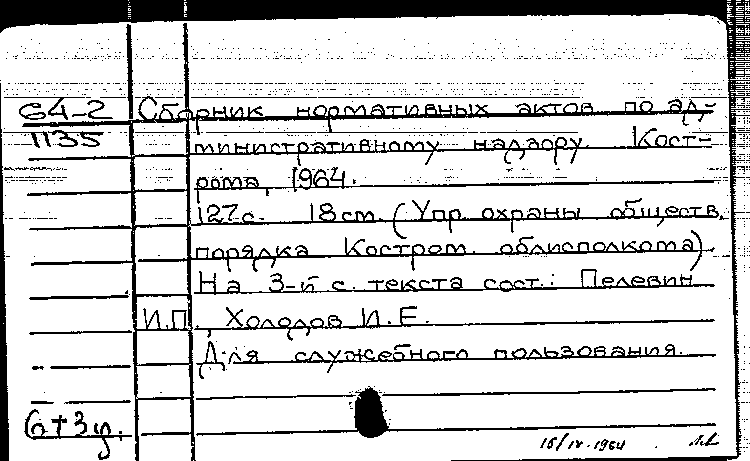 64-2 Сборник нормативных актов по ад-
1135 министративному надзору. Кост-
рома, 1964.
127 с. 18 см. (Упр. охраны обществ.
порядка Костром. облисполкома).
На 3-й с. текста сост.: Пелевин
И.П., Холодов И.Е.
Для служебного пользования.
6+3 у.
16/IV-1964